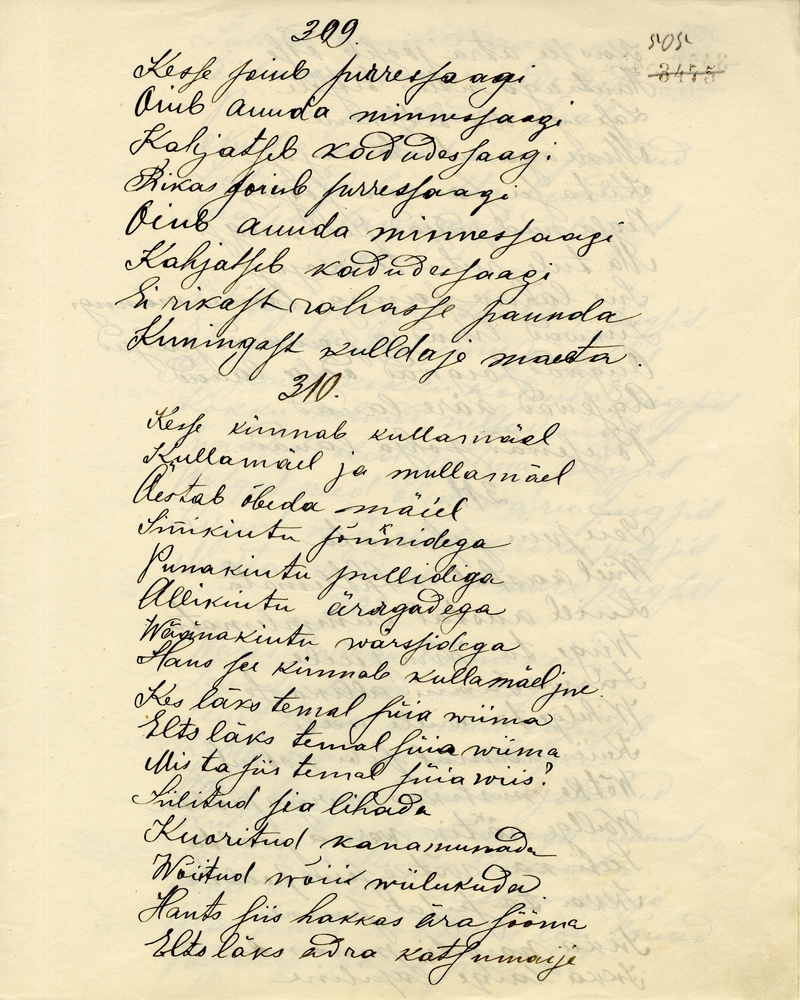 309.
505
3475
Kesse joiub surressaagi
Oiub auuda minnessaagi
Kahjatseb kadudessaagi.
Rikas joiub surressaagi
Oiub auuda minnessaagi
Kahjatseb kadudessaagi
Ei rikast rahasse saunda
Kuningast kulldaje maeta.
310.
Kesse künnab kullamäel
Kullamäel ja mullamäel
Äestab õbeda mäiel
Sinikintu
Punakintu pullidiga
Allikintu äragadega
Wäänakintu wärssidega
Hans see künnab kullamäel jne.
Kes läks temal süia wiima
Elts läks temal süia wiima
Mis ta siis temal süia wiis?
Silitud sia lihada
Kuoritud kanamunada
Wõitud wõiii wiilukuda
Hants siis hakkas ära sööma
Elts läks adra katsumaije